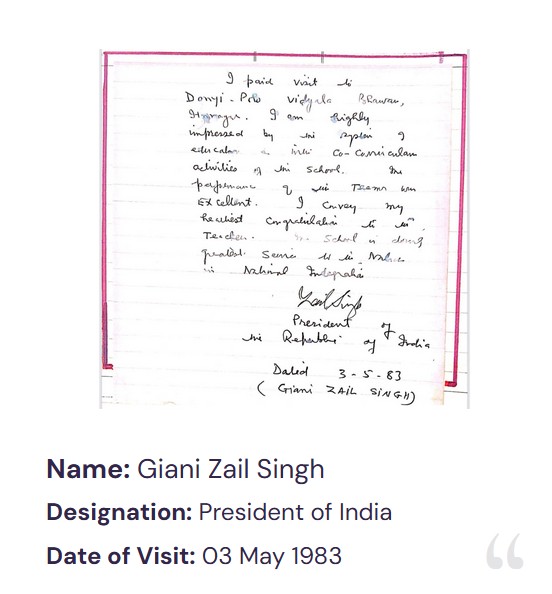 I paid visit to
Donyi-Polo Vidyala Bhawan,
Itanagar. I am highly
impressed by the system of
education
activities of the School. The
performance of the Teams was
Excellent. I convey my
heartiest Congratulation to the
Teacher. The School is doing
greatest Service to the Nation
in National Integration
Zail Singh
President of
the Republic of India
Dated 3-5-83
(Giani ZAIL SINGH)
Name: Giani Zail Singh
Designation: President of India
Date of Visit: 03 May 1983